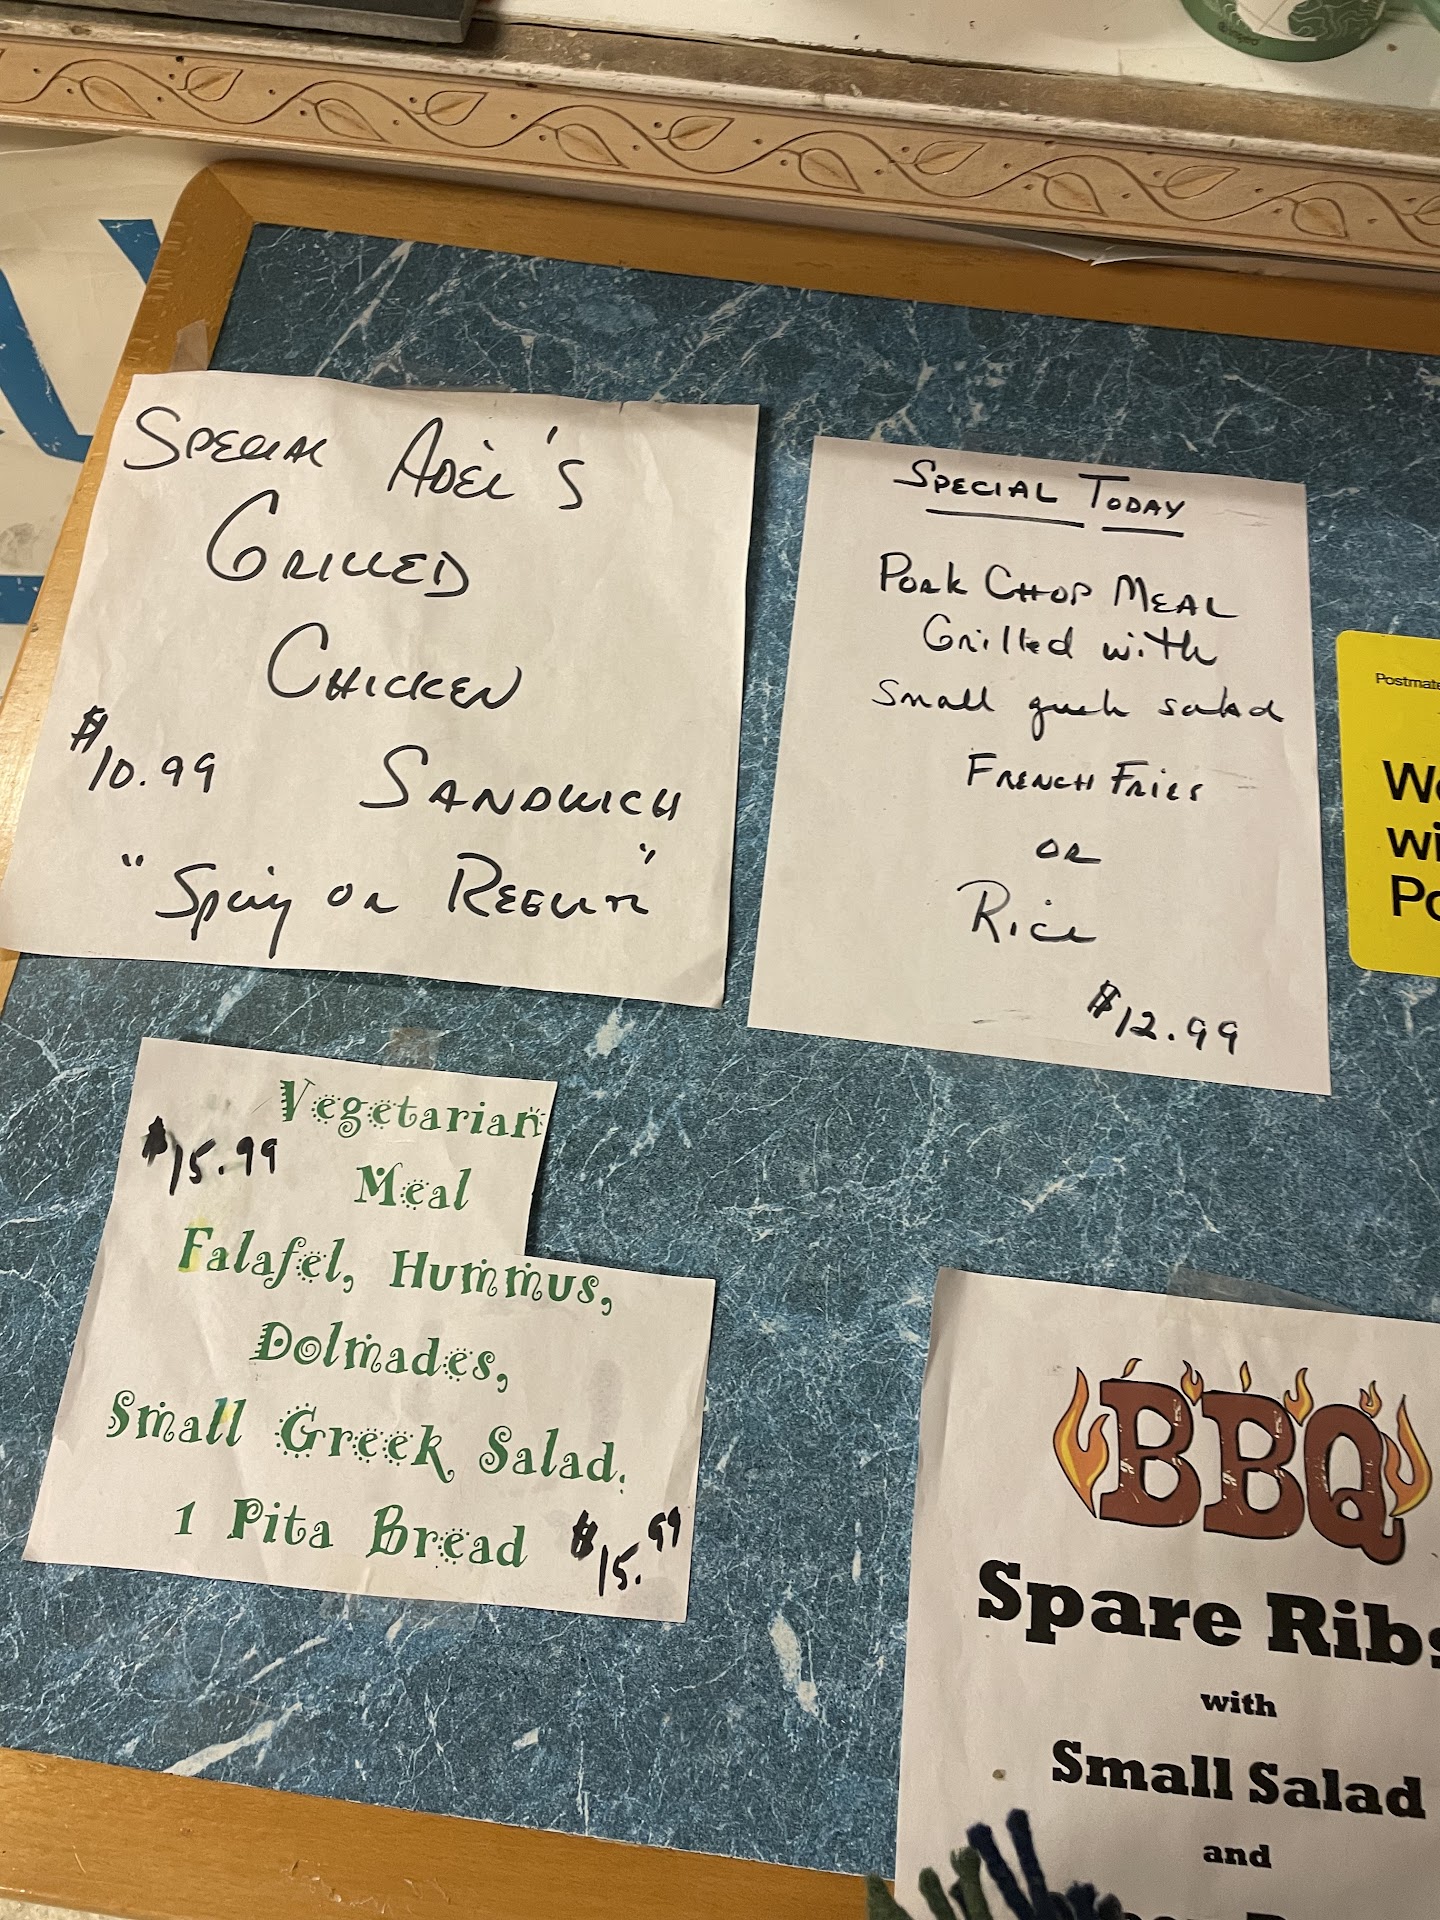 SPECIAL ADEL'S
GRILLED
CHICKEN
$10.99 SANDWICH
"Spicy OR REGULAR"
SPECIAL TODAY
PORK CHOP MEAL
Grilled with
Small greek salad
FRENCH FRIES
OR
Rice
$12.99
Postmate
We
wi
Po
Vegetarian
$15.99
Meal
Falafel, Hummus,
Dolmades,
Small Greek Salad.
1 Pita Bread $15.99
BBQ
Spare Ribs
with
Small Salad
and